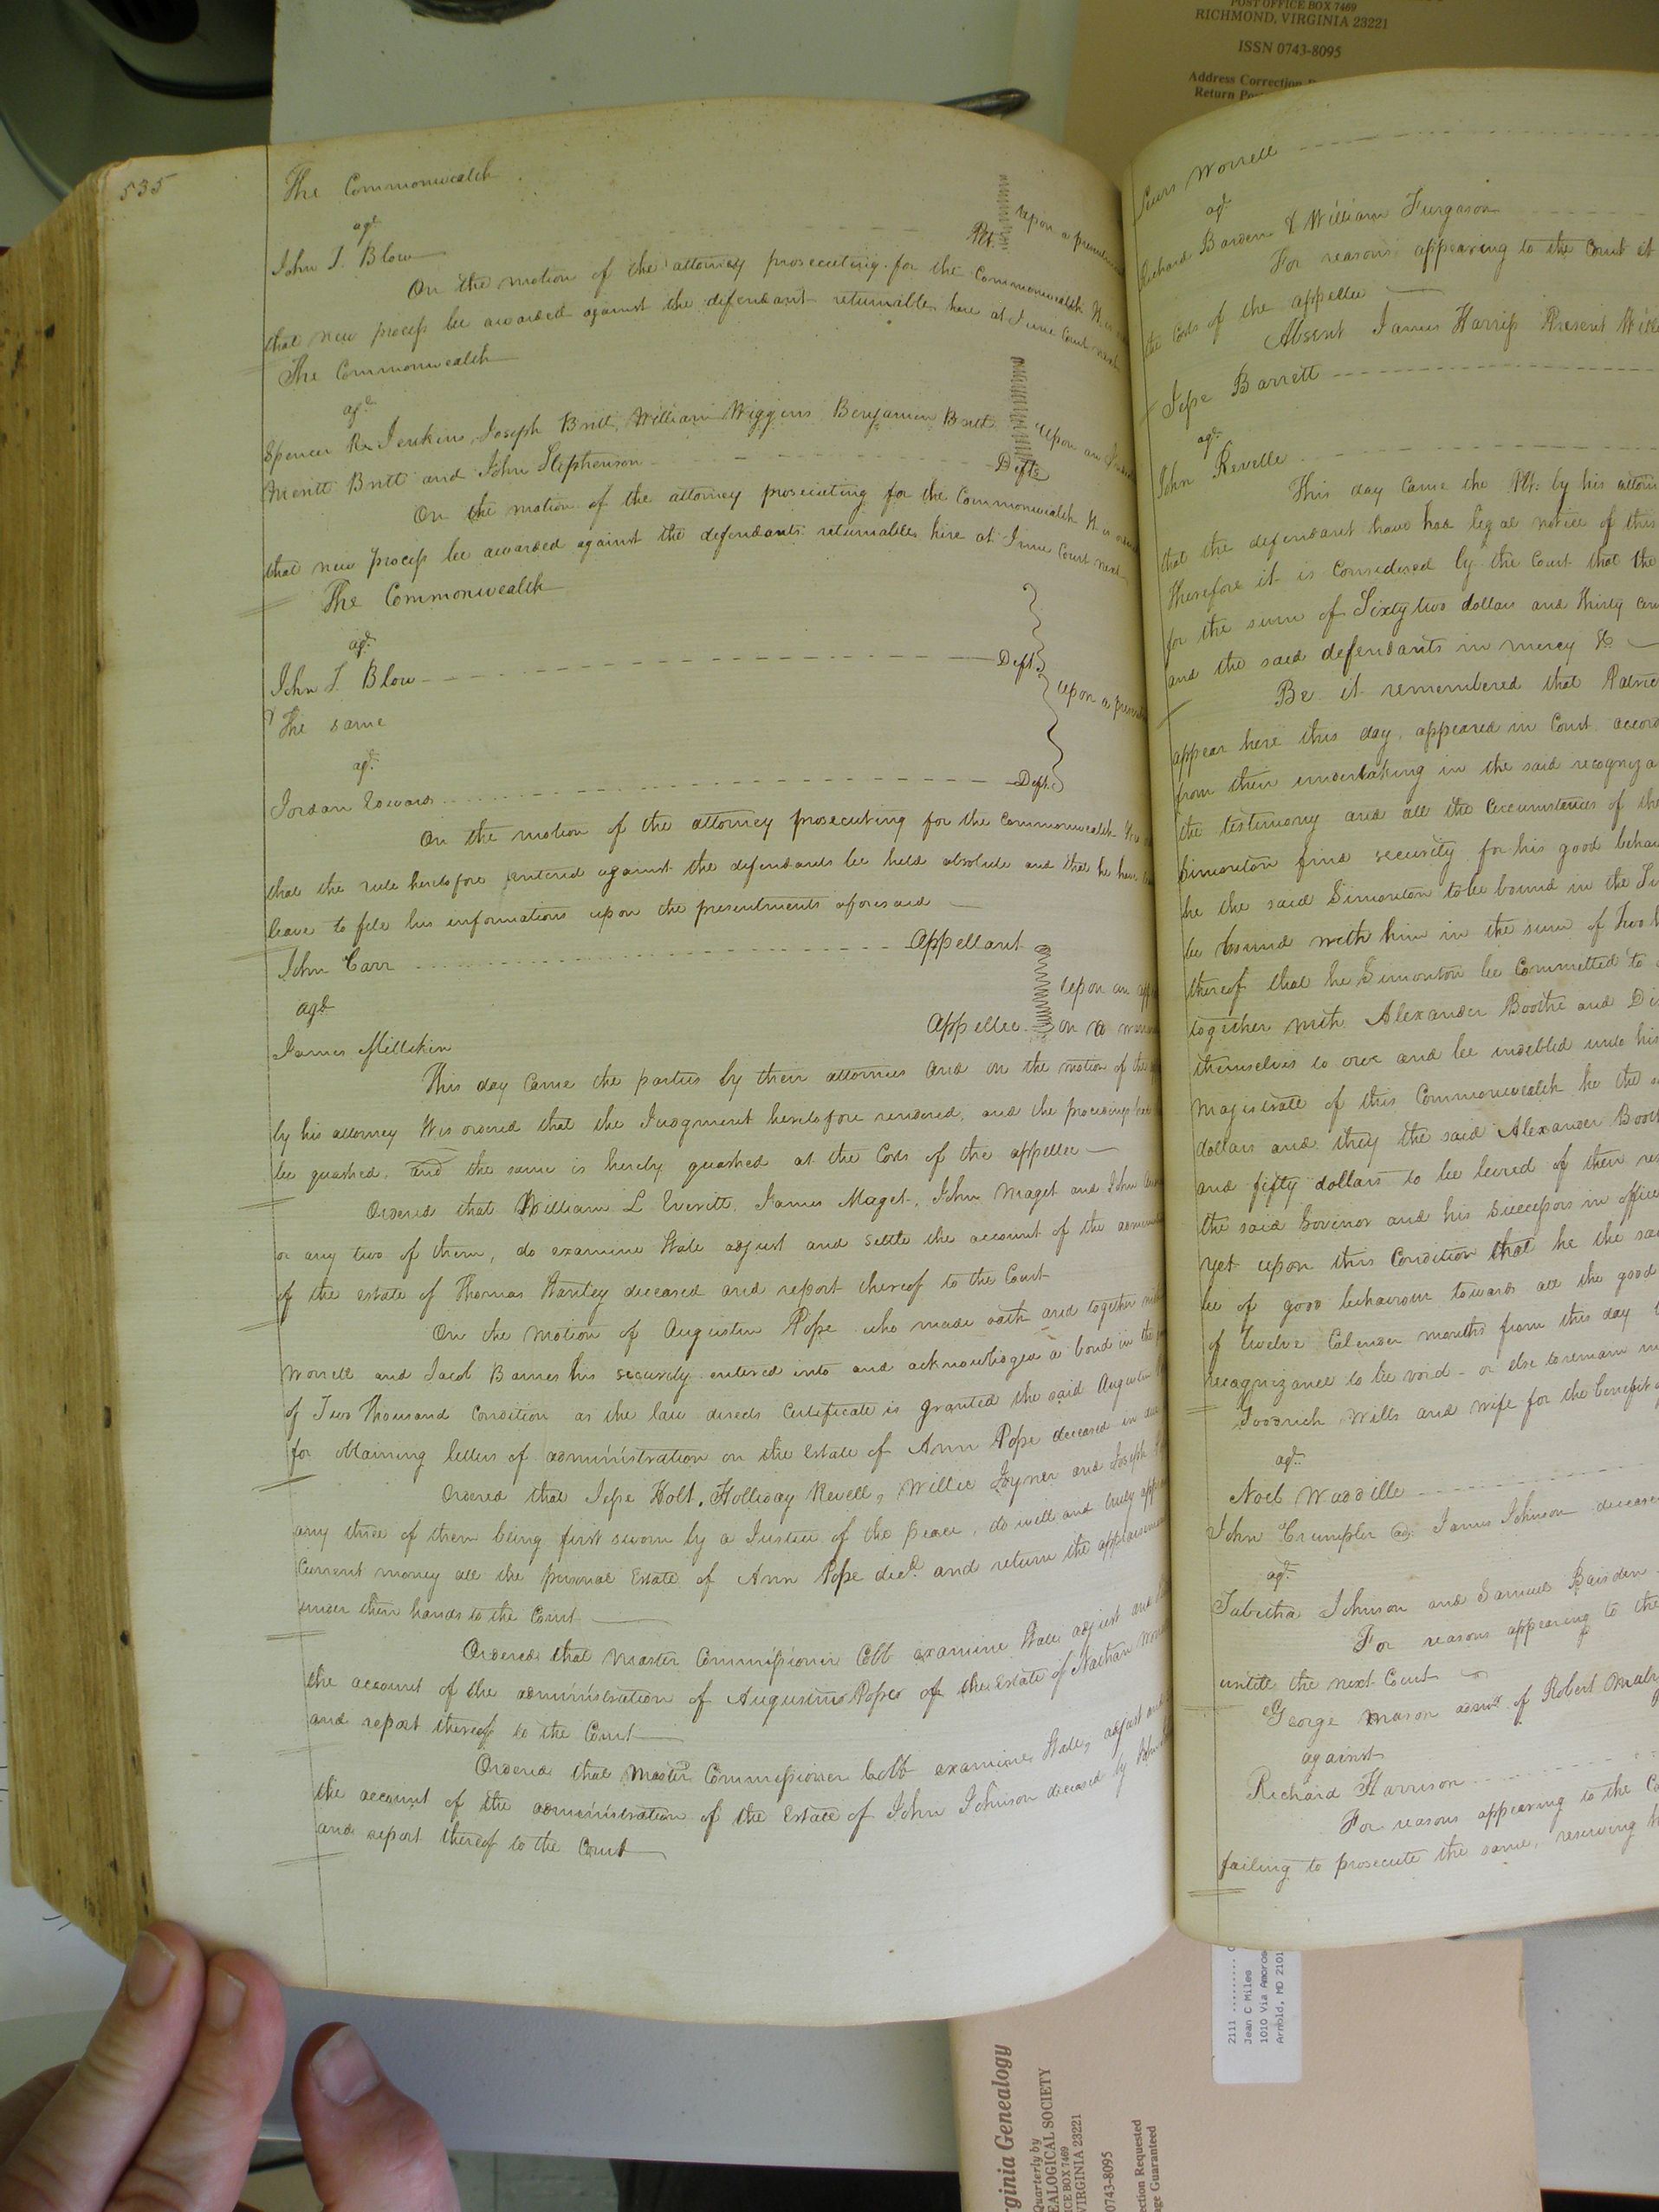 POST OFFICE BOX 7469
RICHMOND, VIRGINIA 23221
ISSN 0743-8095
Address Correction
Return
535
The Commonwealth
agt.
John T. Blow
Plt.
upon a
On the motion of the attorney prosecuting for the Commonwealth It is
that new process be awarded against the defendant returnable here at June Court next
The Commonwealth
agt.
Spencer R. Jenkins, Joseph Britt, William Wiggins, Benjamin Britt
upon an
Meritt Britt and John Stephenson Defts
On the motion of the attorney prosecuting for the Commonwealth It is
that new process be awarded against the defendants returnable here at June Court next
The Commonwealth
agt.
John T. Blow Deft.
upon a
The same
agt.
Jordan Edwards Deft.
On the motion of the attorney prosecuting for the Commonwealth It is
that the rule heretofore entered against the defendants be held absolute and that he have
leave to file his informations upon the presentments aforesaid
John Carr Appellant
upon an
agt.
Appellee on a
James Millikin
This day came the parties by their attornies and on the motion of the
by his attorney It is ordered that the Judgment heretofore rendered, and the proceedings
be quashed, and the same is hereby quashed at the Costs of the appellee
Ordered that William L Everitt, James Maget, John Maget and John
or any two of them, do examine State adjust and settle the account of the
of the estate of Thomas Stanley deceased and report thereof to the Court
On the motion of Augustin Pope who made oath and together
Worrell and Jacob Barnes his security entered into and acknowledged a bond in the
of Two Thousand Condition as the law directs Certificate is granted the said Augustin
for obtaining letters of administration on the Estate of Ann Pope deceased in due
Ordered that Jesse Holt, Holliday Revell, Willie Joyner and Joseph
any three of them being first sworn by a Justice of the peace, do well and truly
Current money all the personal Estate of Ann Pope decd. and return the appraisement
under their hands to the Court
Ordered that Master Commissioner Cobb examine State, adjust and
the account of the administration of Augustus Popes of the Estate of Nathan
and report thereof to the Court
Ordered that Master Commissioner Cobb examine, State, adjust and
the account of the administration of the Estate of John Johnson deceased by
and report thereof to the Court
Worrell
agt.
Richard Barden & William Furgason
For reasons appearing to the Court it
the Costs of the appellee
Absent James Harriss Present
Jesse Barrett
agt.
John Revelle
This day came the Plt. by his
that the defendant have had legal notice of this
Therefore it is Considered by the Court that the
for the sum of Sixty two dollars and thirty
and the said defendants in mercy &c
Be it remembered that
appear here this day, appeared in Court
from their undertaking in the said
the testimony and all the Circumstances of the
Simonton find security for his good
he the said Simonton to be bound in the
be bound with him in the sum of Two
thereof that he Simonton be Committed to
together with Alexander Boothe and
themselves to owe and be indebted unto his
magistrate of this Commonwealth he the
dollars and they the said Alexander
and fifty dollars to be levied of their
the said Govenor and his Successors in office
yet upon this Condition that he the said
be of good behaviour towards all the good
of twelve Calender months from this day
recognizance to be void - or else to remain in
Goodrich Wills and wife for the benefit of
agt.
Noel Waddille
John Crumpler adr. James Johnson deceased
agt.
Tabitha Johnson and Samuel Baisden
For reasons appearing to the
untill the next Court
George Mason admr. of Robert
against
Richard Harrison
For reasons appearing to the
failing to prosecute the same, reserving
2111
Jean C Miles
1010 Via Amoros
Arnold, MD 2101
ginia Genealogy
Quarterly by
EALOGICAL SOCIETY
ICE BOX 7469
VIRGINIA 23221
0743-8095
ection Requested
ge Guaranteed